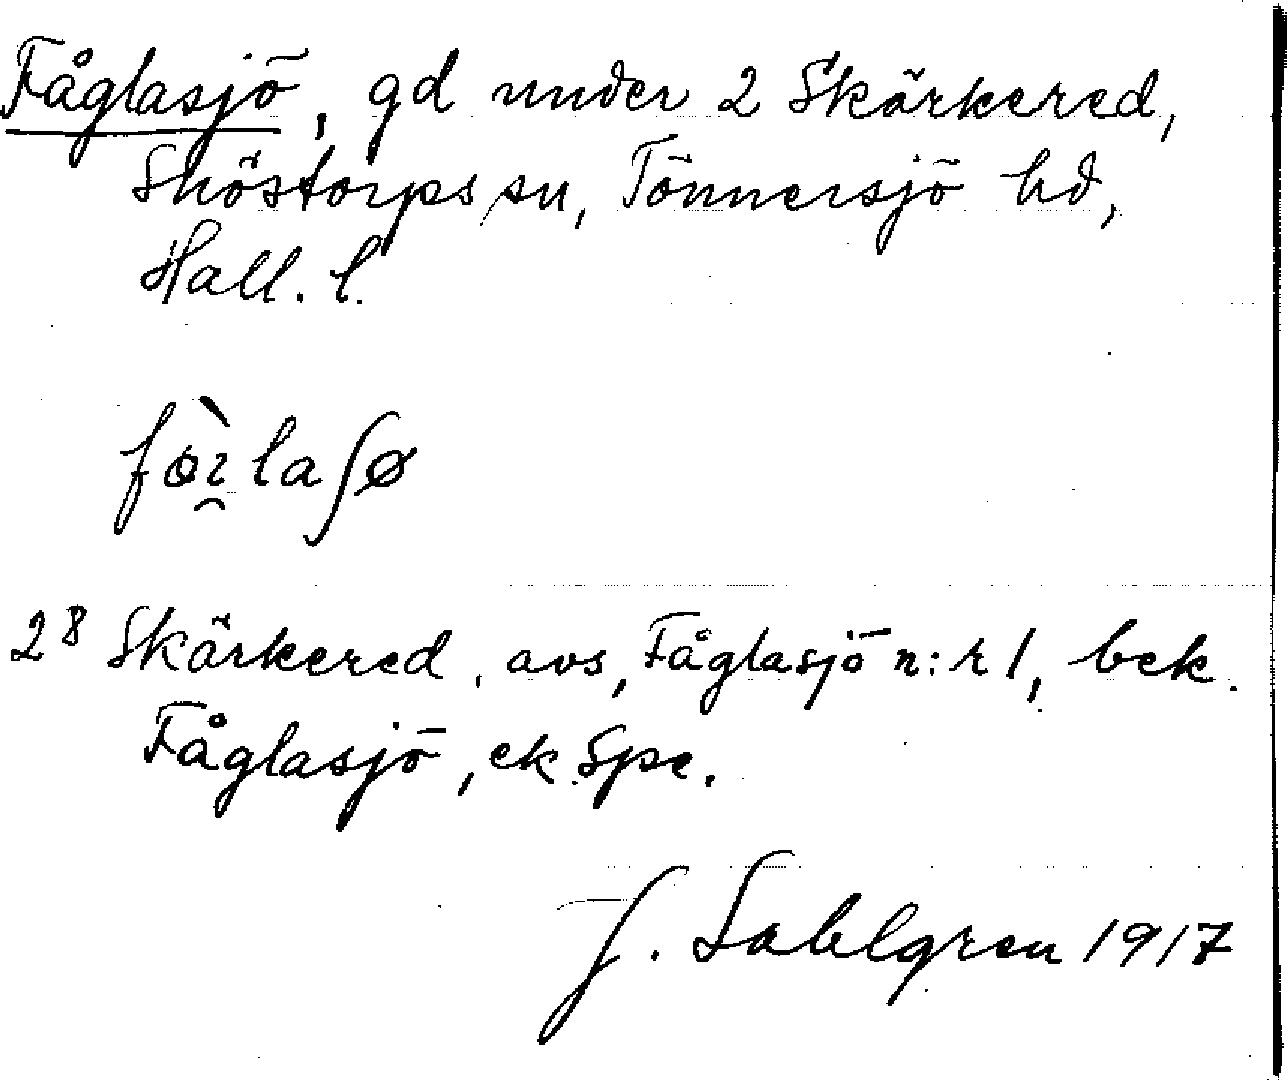 Fåglasjö, gd under 2 Skärkered,
Snöstorps sn, Tönnersjö hd,
Hall. l.
fòɪ̯laʃø
2⁸ Skärkered, avs, Fåglasjö n:r 1, bek.
Fåglasjö, ek Spe.
J. Sahlgren 1917